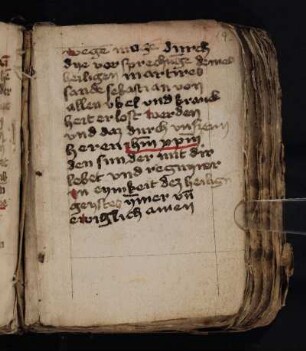 wege mo ze durch
die versprechunge deines
heiligen martires
sancte sebastian von
allen vbel vnd krand
heit erlost werden
vnd daz durch vnseren
heren ihm xpm
den sun der mit dir
lebet vnd regniret
in eynikeit dez heilige
geystes ymer vn
ewiglich amen